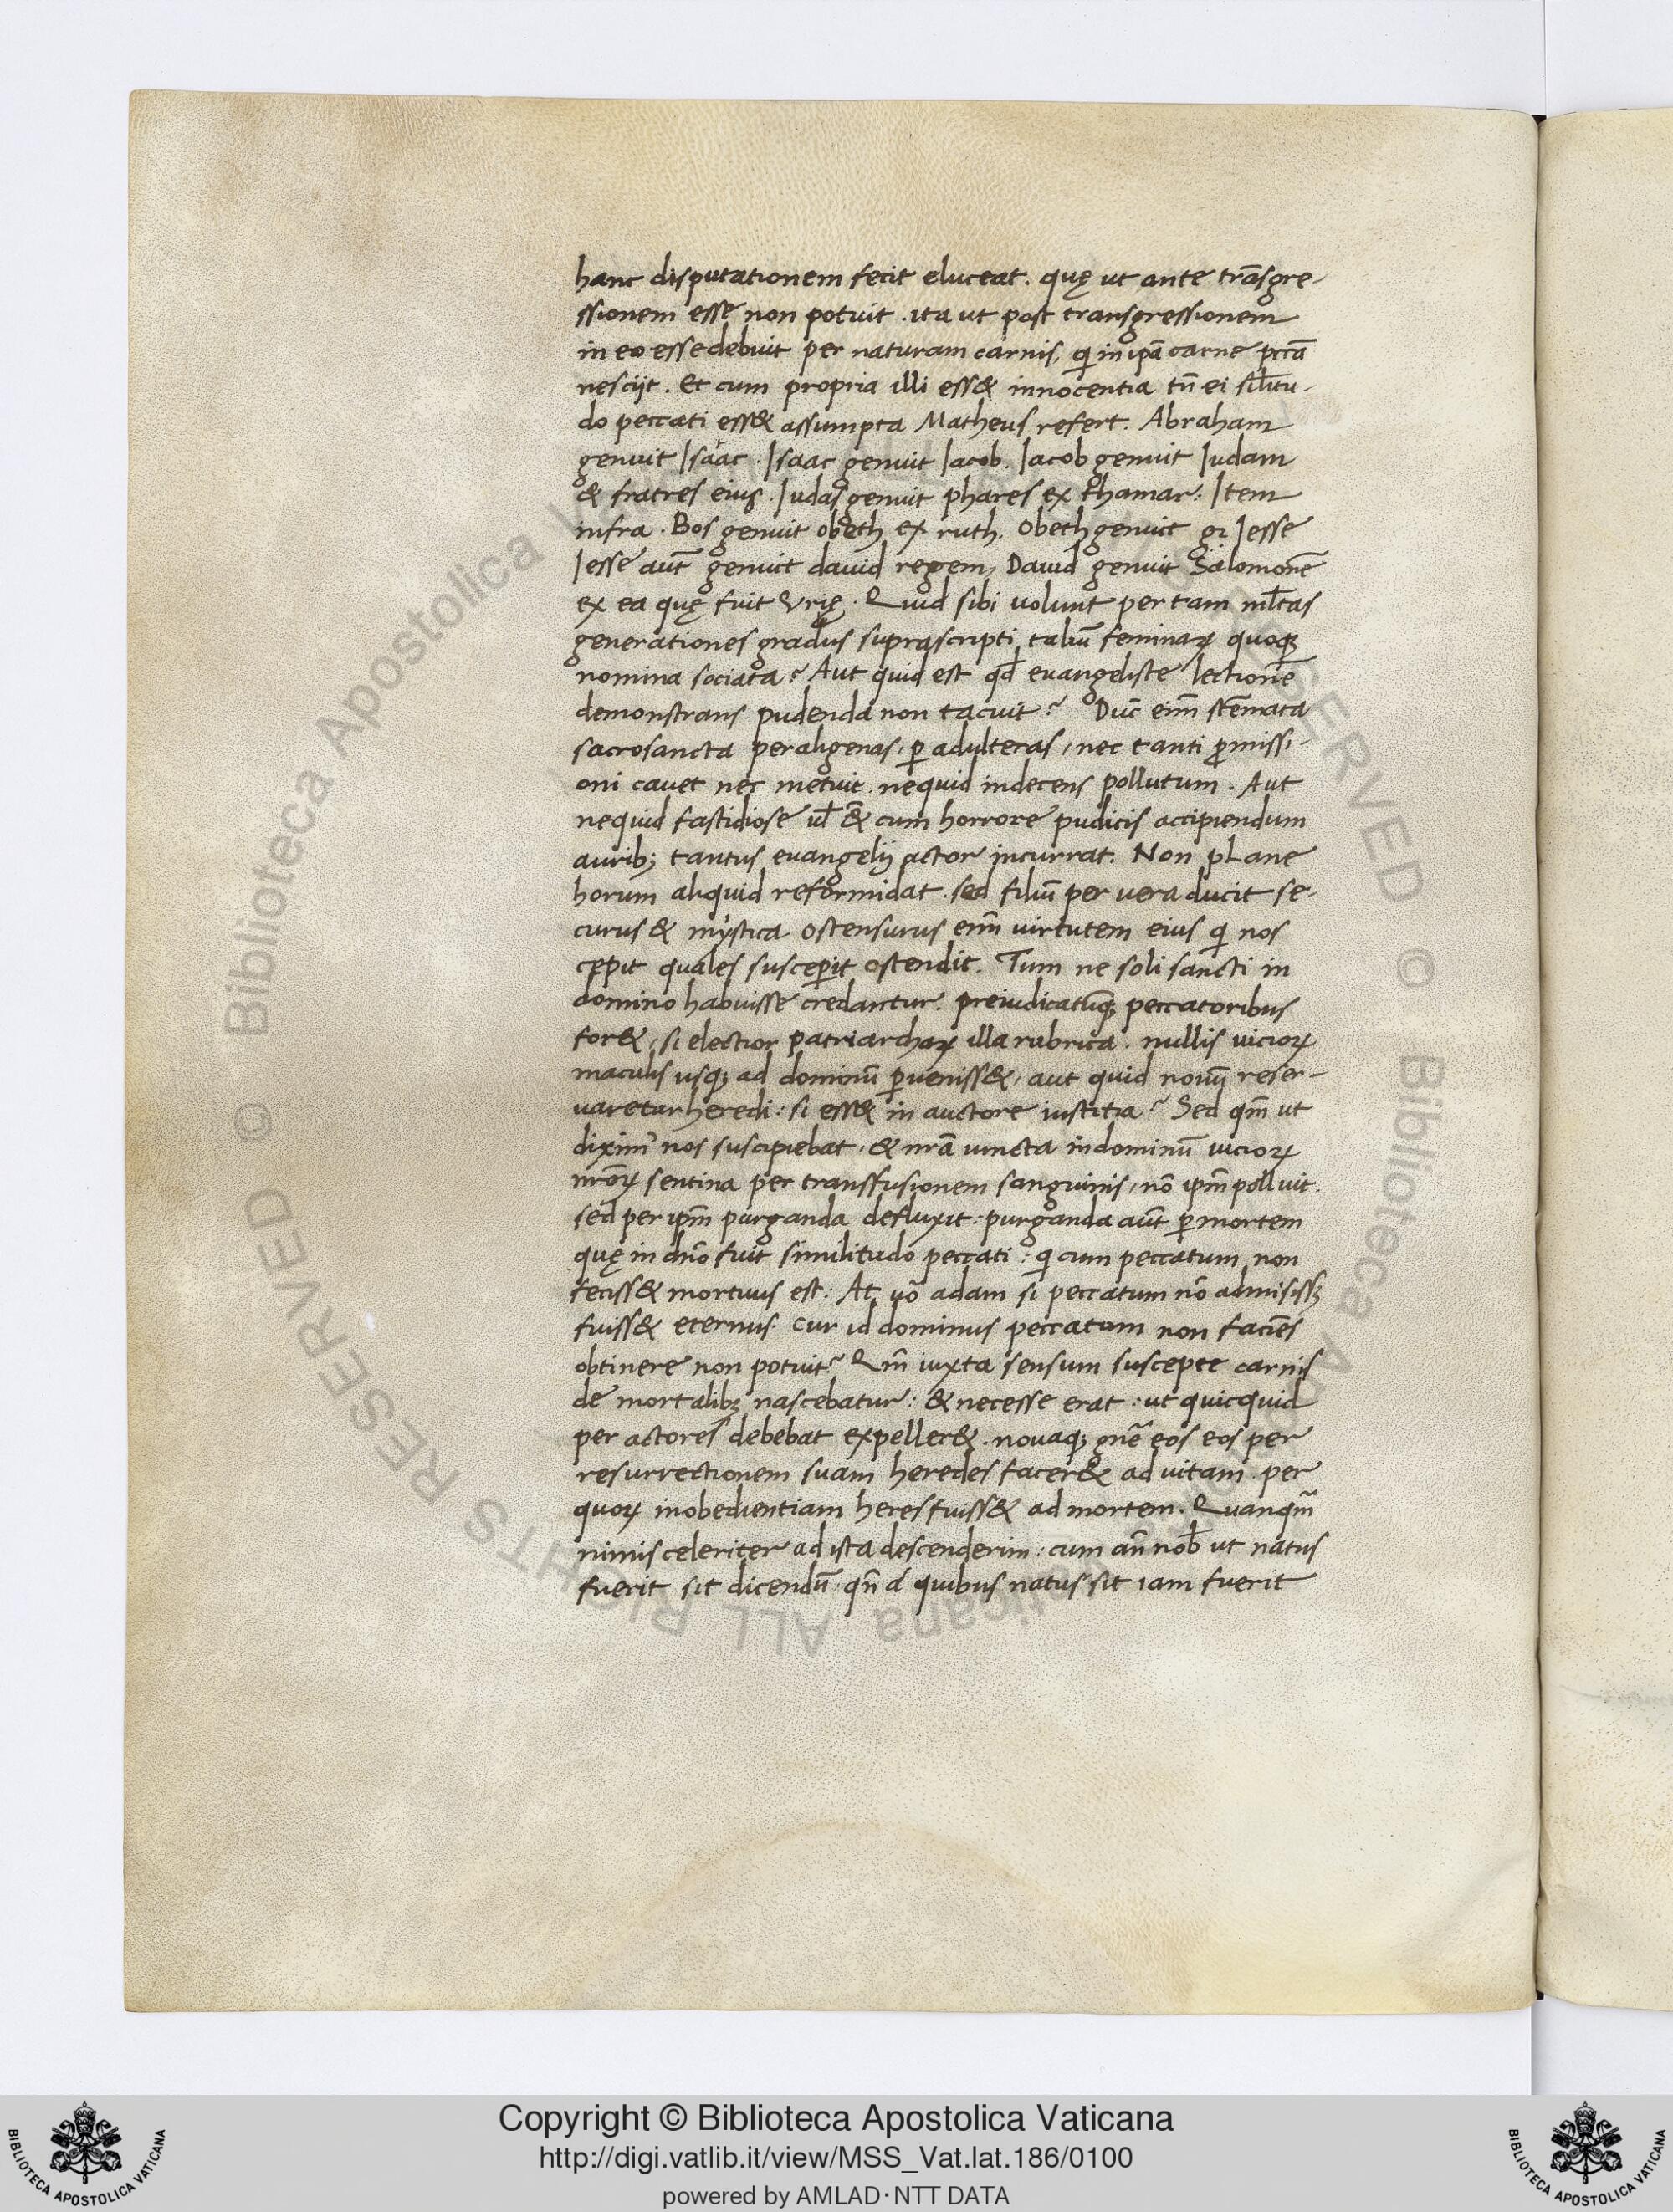 hanc disputationem fecit eluceat. quę ut ante trāsgre-
ssionem esse non potuit. ita ut post transgressionem
in eo esse debuit per naturam carnis, qi in ipā carne pccā
nescijt. Et cum propria illi ess& innocentia tn̄ ei sil̄itu-
do peccati ess& assumpta Matheus refert. Abraham
genuit Isaac. Isaac genuit Iacob. Iacob genuit Iudam
& fratres eius. Iudas genuit phares ex thamar: Item
infra. Bos genuit obeth ex ruth. Obeth genuit Iesse
Iesse aut̄ genuit dauid regem, Dauid genuit Salomonē
ex ea quę fuit Vrię. Quid sibi uolunt per tam ml̄tas
generationes gradus suprascripti taliū feminaꝝ quoqꝫ
nomina sociata? Aut quid est qd̄ euangeliste lectionē
demonstrans pudenda non tacuit? Duc̄ eim̄ stēmata
sacrosancta per aligenas, ꝑ adulteras, nec tanti ꝓmissi-
oni cauet nec metuit. nequid indecens pollutum. Aut
nequid fastidiose ul̄ & cum horrore pudicis accipiendum
auribꝫ tantus euangelij actor incurrat. Non plane
horum aliquid reformidat. sed filiū per uera ducit se-
curus & mystica ostensurus eim̄ uirtutem eius qi nos
cepit quales susceperit ostendit. Tum ne soli sancti in
domino habuisse credantur. preiudicatūqꝫ peccatoribus
for&, si electior patriarchaꝝ illa rubrica. nullis uicioꝝ
maculis usqꝫ ad dominū ꝑueniss&, aut quid nouū reser-
uaretur heredi: si ess& in auctore iustitia? Sed qm̄ ut
diximꝰ nos suscipiebat, & nr̄a uincta in dominū uicioꝝ
nr̄oꝝ sentina per transfusionem sanguinis, nō ipm̄ polluit.
sed per ipm̄ purganda defluxit: purganda aut̄ ꝑ mortem
quę in dn̄o fuit similitudo peccati: qi cum peccatum non
feciss& mortuus est: At uō adam si peccatum nō admisissꝫ
fuiss& eternus. cur id dominus peccatum non faciēs
obtinere non potuit? Qm̄ iuxta sensum suscepte carnis
de mortalibꝫ nascebatur: & necesse erat: ut quicquid
per actores debebat expeller&. nouaqꝫ gn̄e eos eos per
resurrectionem suam heredes facer& ad uitam. per
quoꝝ inobedientiam heres fuiss& ad mortem. Quanqm̄
nimis celeriter ad ista descenderim: cum an̄ nob̄ ut natus
fuerit sit dicendū, qn̄ a quibus natus sit iam fuerit
© Biblioteca Apostolica Vaticana ALL RIGHTS RESERVED
Copyright © Biblioteca Apostolica Vaticana
http://digi.vatlib.it/view/MSS_Vat.lat.186/0100
powered by AMLAD·NTT DATA
BIBLIOTECA APOSTOLICA VATICANA
BIBLIOTECA APOSTOLICA VATICANA